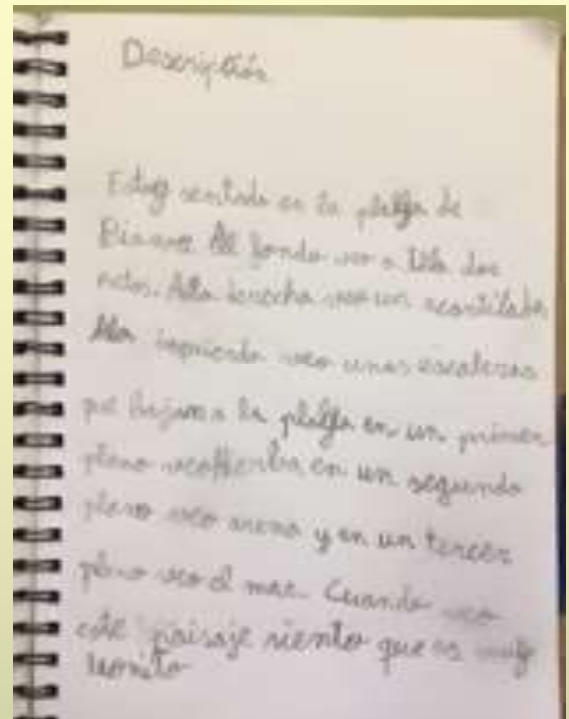 Descripción
Estoy sentado en la playa de
Al fondo veo a
A la derecha veo un acantilado
A la izquierda veo unas escaleras
que bajan a la playa en un primer
plano veo hierba, en un segundo
plano veo arena y en un tercer
plano veo el mar. Cuando veo
este paisaje siento que es muy
bonito